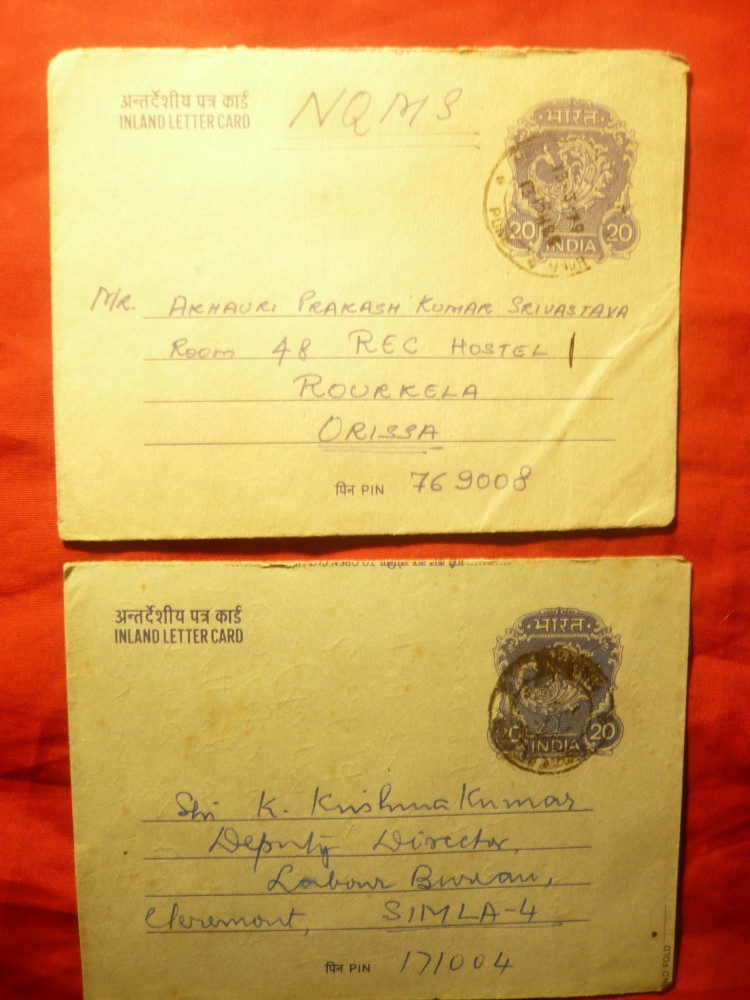 अन्तर्देशीय पत्र कार्ड
INLAND LETTER CARD
NQMS
भारत
20 INDIA 20
MR. AKHAURI PRAKASH KUMAR SRIVASTAVA
ROOM 48 REC HOSTEL 1
ROURKELA
ORISSA
पिन PIN 769008
अन्तर्देशीय पत्र कार्ड
INLAND LETTER CARD
भारत
20 INDIA 20
Shri K. Krishna Kumar
Deputy Director,
Labour Bureau,
Cleremont, SIMLA-4
पिन PIN 171004
FOLD